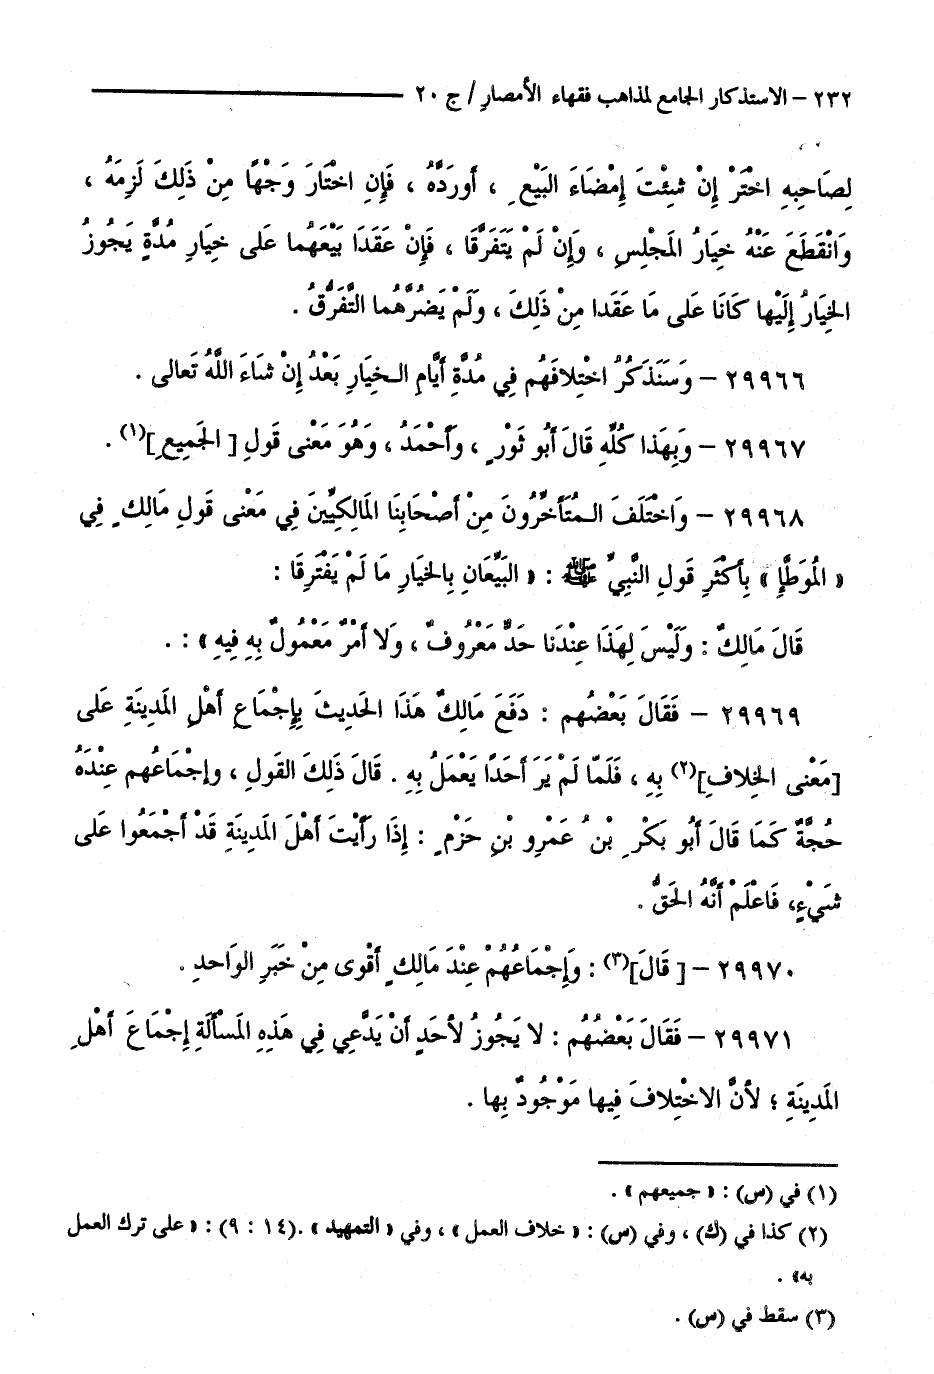 ٢٣٢ – الاستذكار الجامع لمذاهب فقهاء الأمصار / ج ٢٠
لِصَاحِبِهِ اخْتَرْ إِنْ شِئْتَ إِمْضَاءَ البَيْعِ ، أورَدَّهُ ، فَإِنِ اخْتَارَ وَجْهًا مِنْ ذَلِكَ لَزِمَهُ ،
وَانْقَطَعَ عَنْهُ خِيَارُ المَجْلِسِ ، وَإِنْ لَمْ يَتَفَرَّقَا ، فَإِنْ عَقَدَا بَيْعَهُما عَلى خِيَارِ مُدَّةٍ يَجُوزُ
الخِيَارُ إِلَيْها كَانَا عَلى مَا عَقَدا مِنْ ذَلِكَ ، وَلَمْ يَضُرَّهُما التَّفَرُّقُ .
٢٩٩٦٦ – وَسَنَذكُرُ اخْتِلافَهُم فِي مُدَّةِ أيَّامِ الـخِيَارِ بَعْدُ إِنْ شَاءَ اللَّهُ تَعالى .
٢٩٩٦٧ – وَبِهَذا كُلِّهِ قَالَ أبُو ثَوْرٍ ، وَأحْمَدُ ، وَهُوَ مَعْنى قَولِ [ الجَمِيعِ ](١) .
٢٩٩٦٨ – وَاخْتَلَفَ الـمُتَأخِّرُونَ مِنْ أصْحَابِنَا المَالِكِيِّينَ فِي مَعْنى قَولِ مَالِكٍ فِي
« المُوَطَّإِ » بِأكْثَرِ قَولِ النَّبِيِّ ﷺ : « البَيِّعَانِ بِالخِيَارِ مَا لَمْ يَفْتَرِقَا :
قَالَ مَالِكٌ : وَلَيْسَ لِهَذَا عِنْدَنا حَدٌّ مَعْرُوفٌ ، وَلا أمْرٌ مَعْمُولٌ بِهِ فِيهِ » : .
٢٩٩٦٩ – فَقَالَ بَعْضُهم : دَفَعَ مَالِكٌ هَذَا الحَدِيثَ بِإِجْمَاعِ أهْلِ المَدِينَةِ عَلى
[مَعْنى الخِلافِ](٢) بِهِ ، فَلَمّا لَمْ يَرَ أحَدًا يَعْمَلُ بِهِ . قَالَ ذَلِكَ القَولِ ، وإجْمَاعُهم عِنْدَهُ
حُجَّةٌ كَمَا قَالَ أبُو بَكْرِ بْنُ عَمْرِو بْنِ حَزْمٍ : إِذَا رَأيْتَ أهْلَ المَدِينَةِ قَدْ أجْمَعُوا عَلى
شَيْءٍ، فَاعْلَمْ أنَّهُ الحَقُّ .
٢٩٩٧٠ – [ قَالَ](٣) : وَإِجْمَاعُهُمْ عِنْدَ مَالِكٍ أقْوى مِنْ خَبَرِ الوَاحدِ .
٢٩٩٧١ – فَقَالَ بَعْضُهُم : لا يَجُوزُ لأحَدٍ أنْ يَدَّعِي فِي هَذِهِ المَسْألَةِ إِجْمَاعَ أهْلِ
المَدِينَةِ ؛ لأنَّ الاخْتِلافَ فِيها مَوْجُودٌ بِها .
(١) في (س) : « جميعهم » .
(٢) كذا في (ك) ، وفي (س) : « خلاف العمل » ، وفي « التمهيد » .(١٤ : ٩) : « على ترك العمل
به» .
(٣) سقط في (س) .